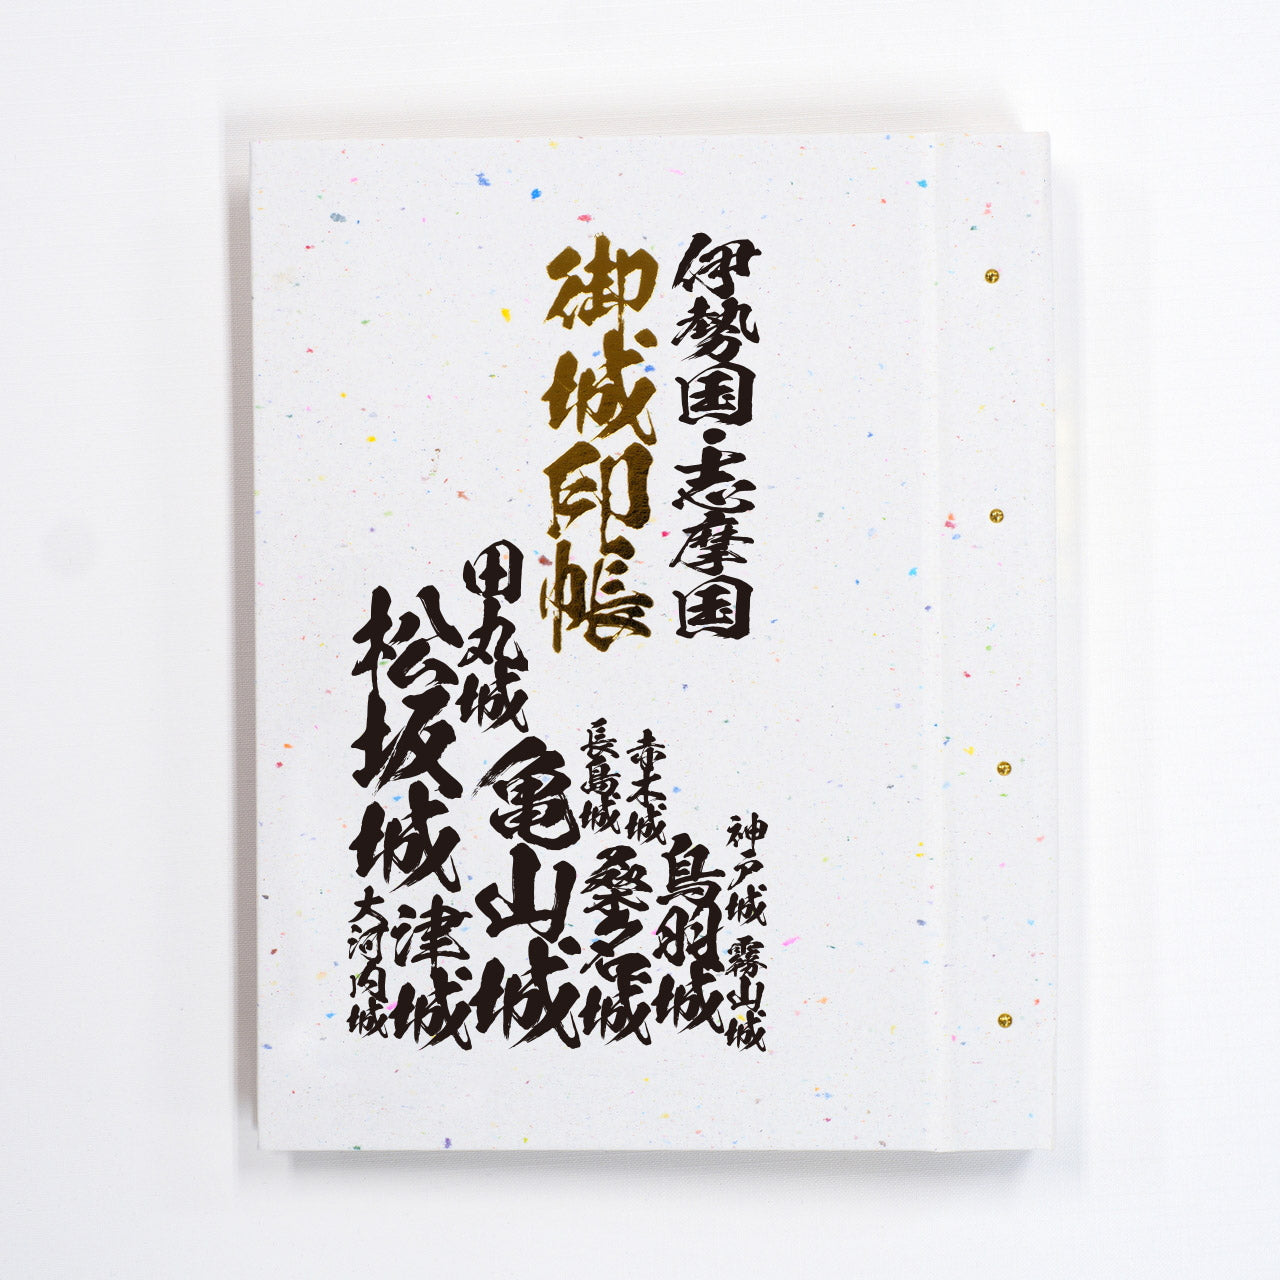 伊勢国・志摩国
御城印帳
神戸城
霧山城
赤木城
鳥羽城
長島城
桑名城
田丸城
亀山城
松坂城
津城
大河内城